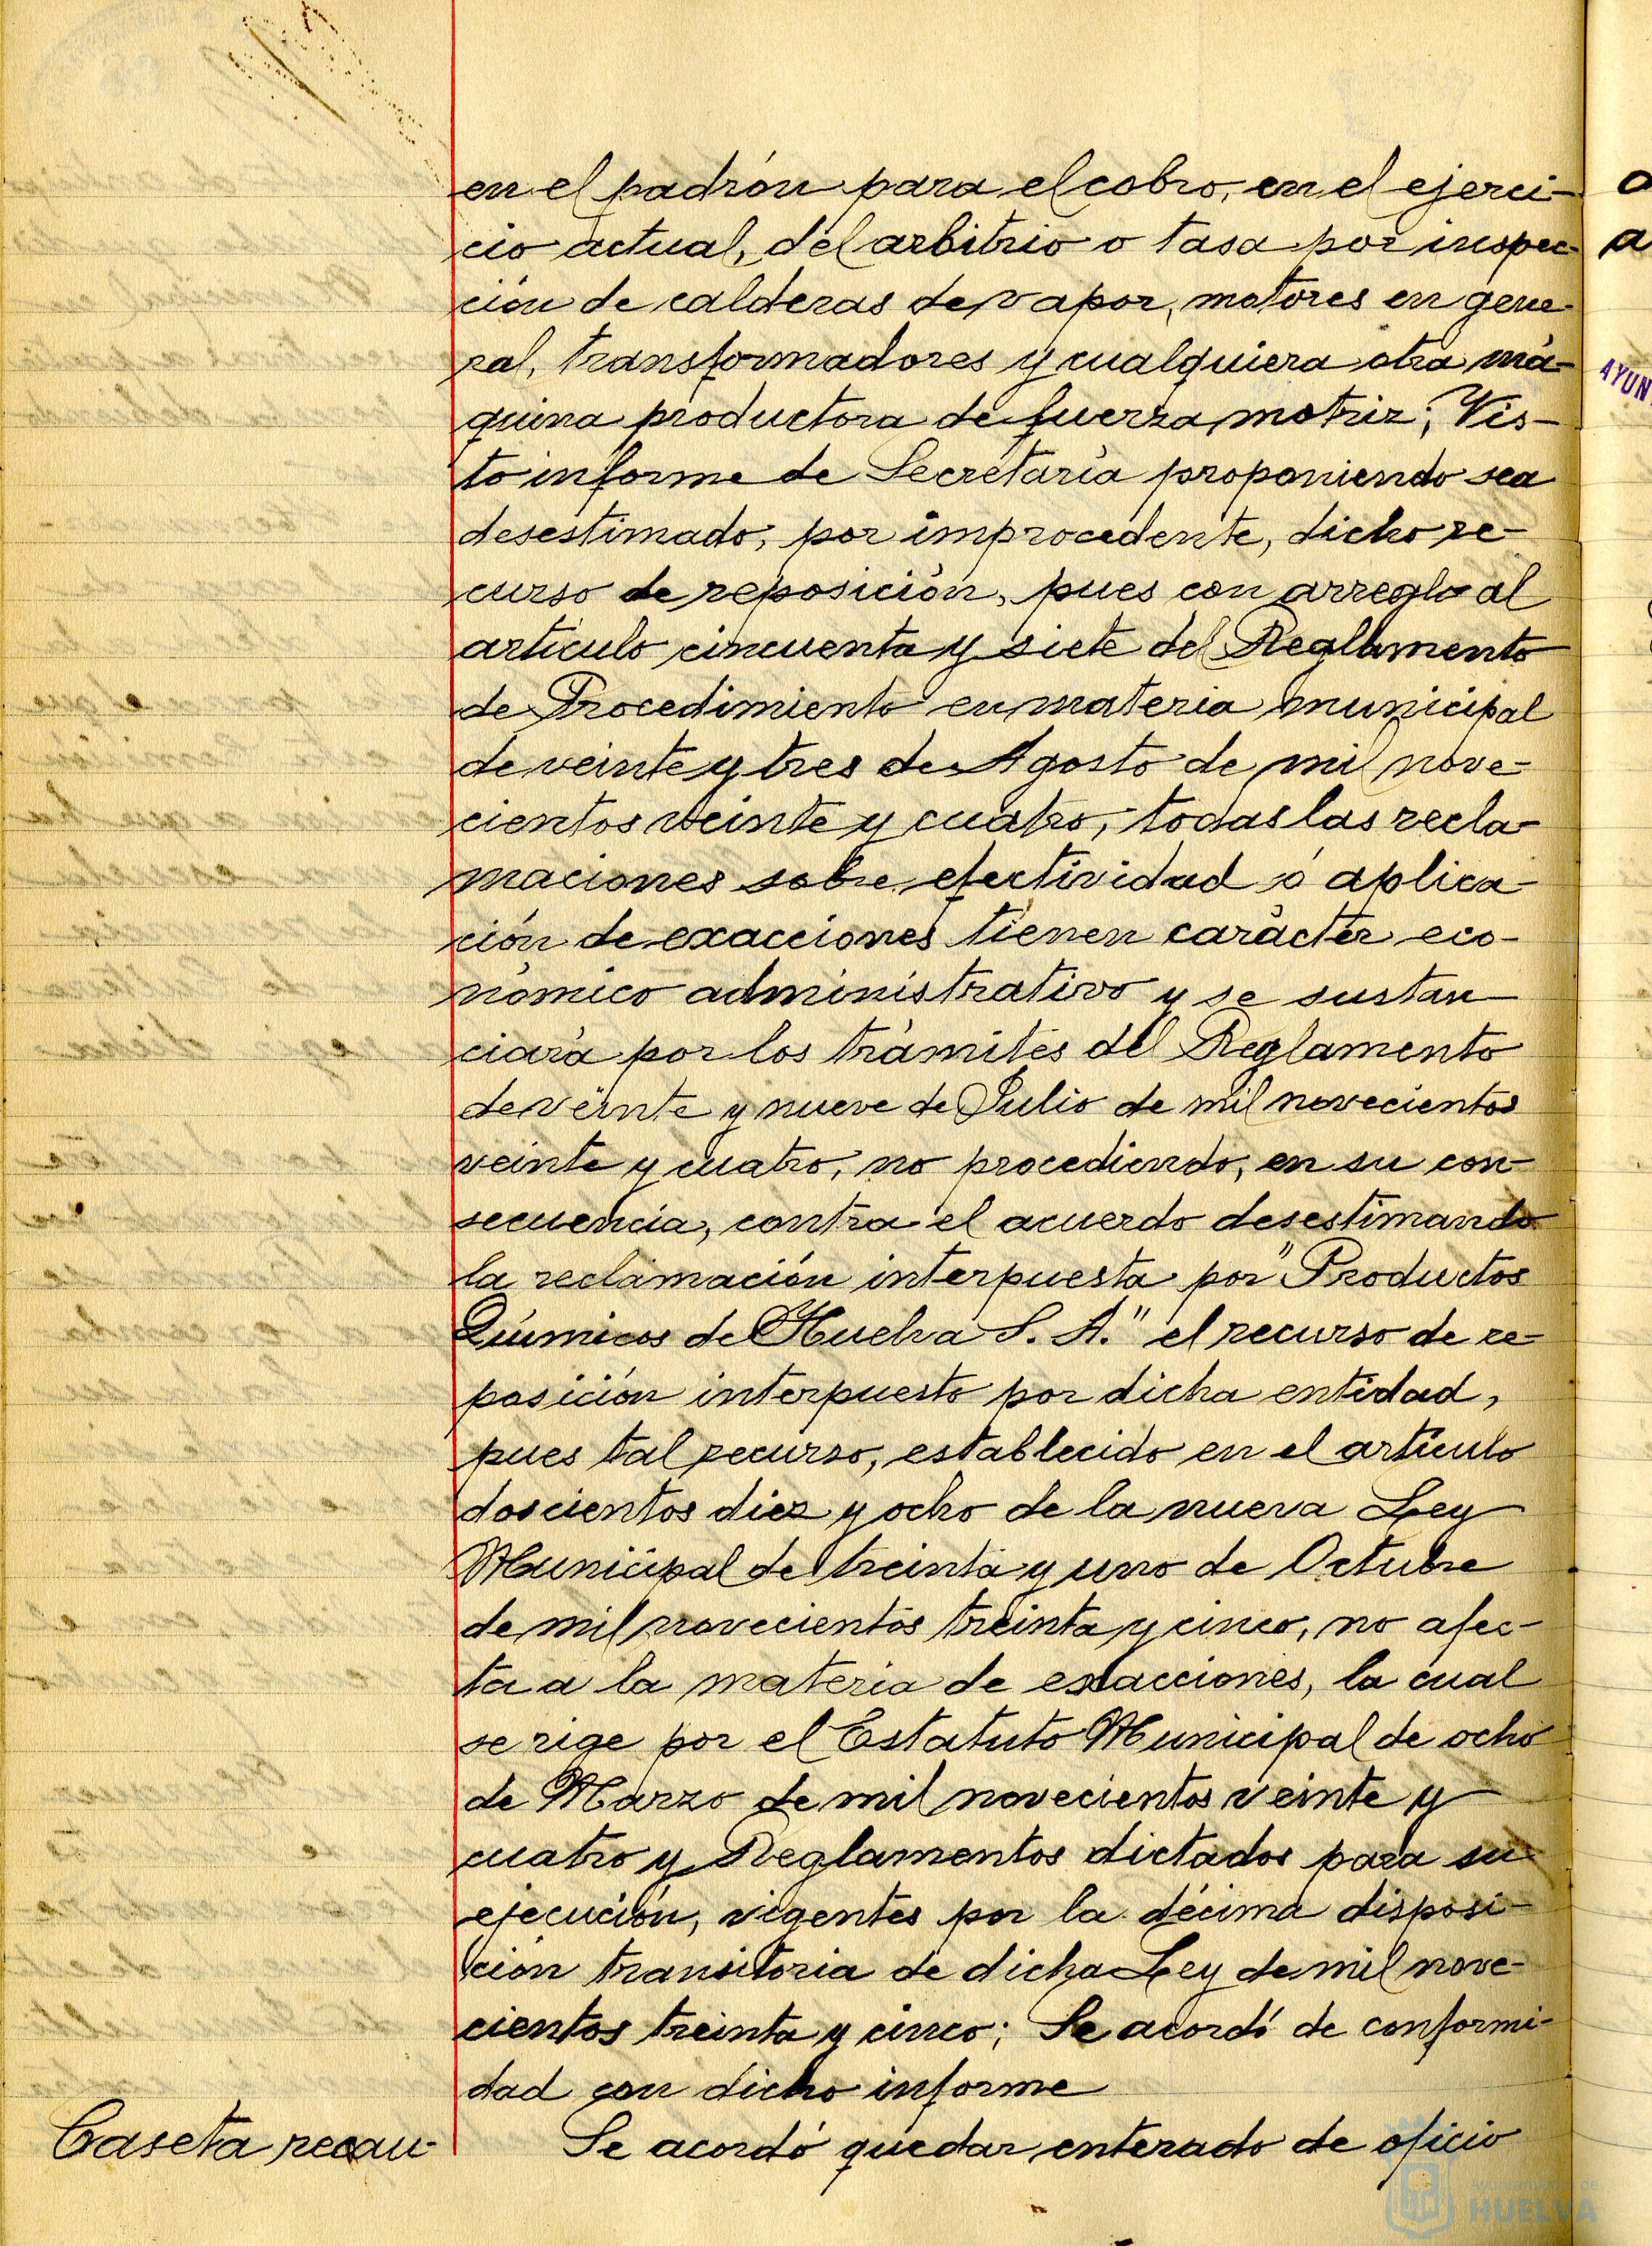 en el padrón para el cobro, en el ejerci-
cio actual, del arbitrio o tasa por inspec-
ción de calderas de vapor, motores en gene-
ral, transformadores y cualquiera otra má-
quina productora de fuerza motriz; Vis-
to informe de Secretaría proponiendo sea
desestimado, por improcedente, dicho re-
curso de reposición, pues con arreglo al
artículo cincuenta y siete del Reglamento
de Procedimiento en materia municipal
de veinte y tres de Agosto de mil nove-
cientos veinte y cuatro, todas las recla-
maciones sobre efectividad ó aplica-
ción de exacciones tienen carácter eco-
nómico administrativo y se sustan-
ciará por los trámites del Reglamento
de veinte y nueve de Julio de mil novecientos
veinte y cuatro, no procediendo, en su con-
secuencia, contra el acuerdo desestimando
la reclamación interpuesta por "Productos
Químicos de Huelva S. A." el recurso de re-
posición interpuesto por dicha entidad,
pues tal recurso, establecido en el artículo
doscientos diez y ocho de la nueva Ley
Municipal de treinta y uno de Octubre
de mil novecientos treinta y cinco, no afec-
ta a la materia de exacciones, la cual
se rige por el Estatuto Municipal de ocho
de Marzo de mil novecientos veinte y
cuatro y Reglamentos dictados para su
ejecución, vigentes por la décima disposi-
ción transitoria de dicha Ley de mil nove-
cientos treinta y cinco; Se acordó de conformi-
dad con dicho informe
Caseta recau-
Se acordó quedar enterado de oficio
AYUN
Ayuntamiento de
HUELVA